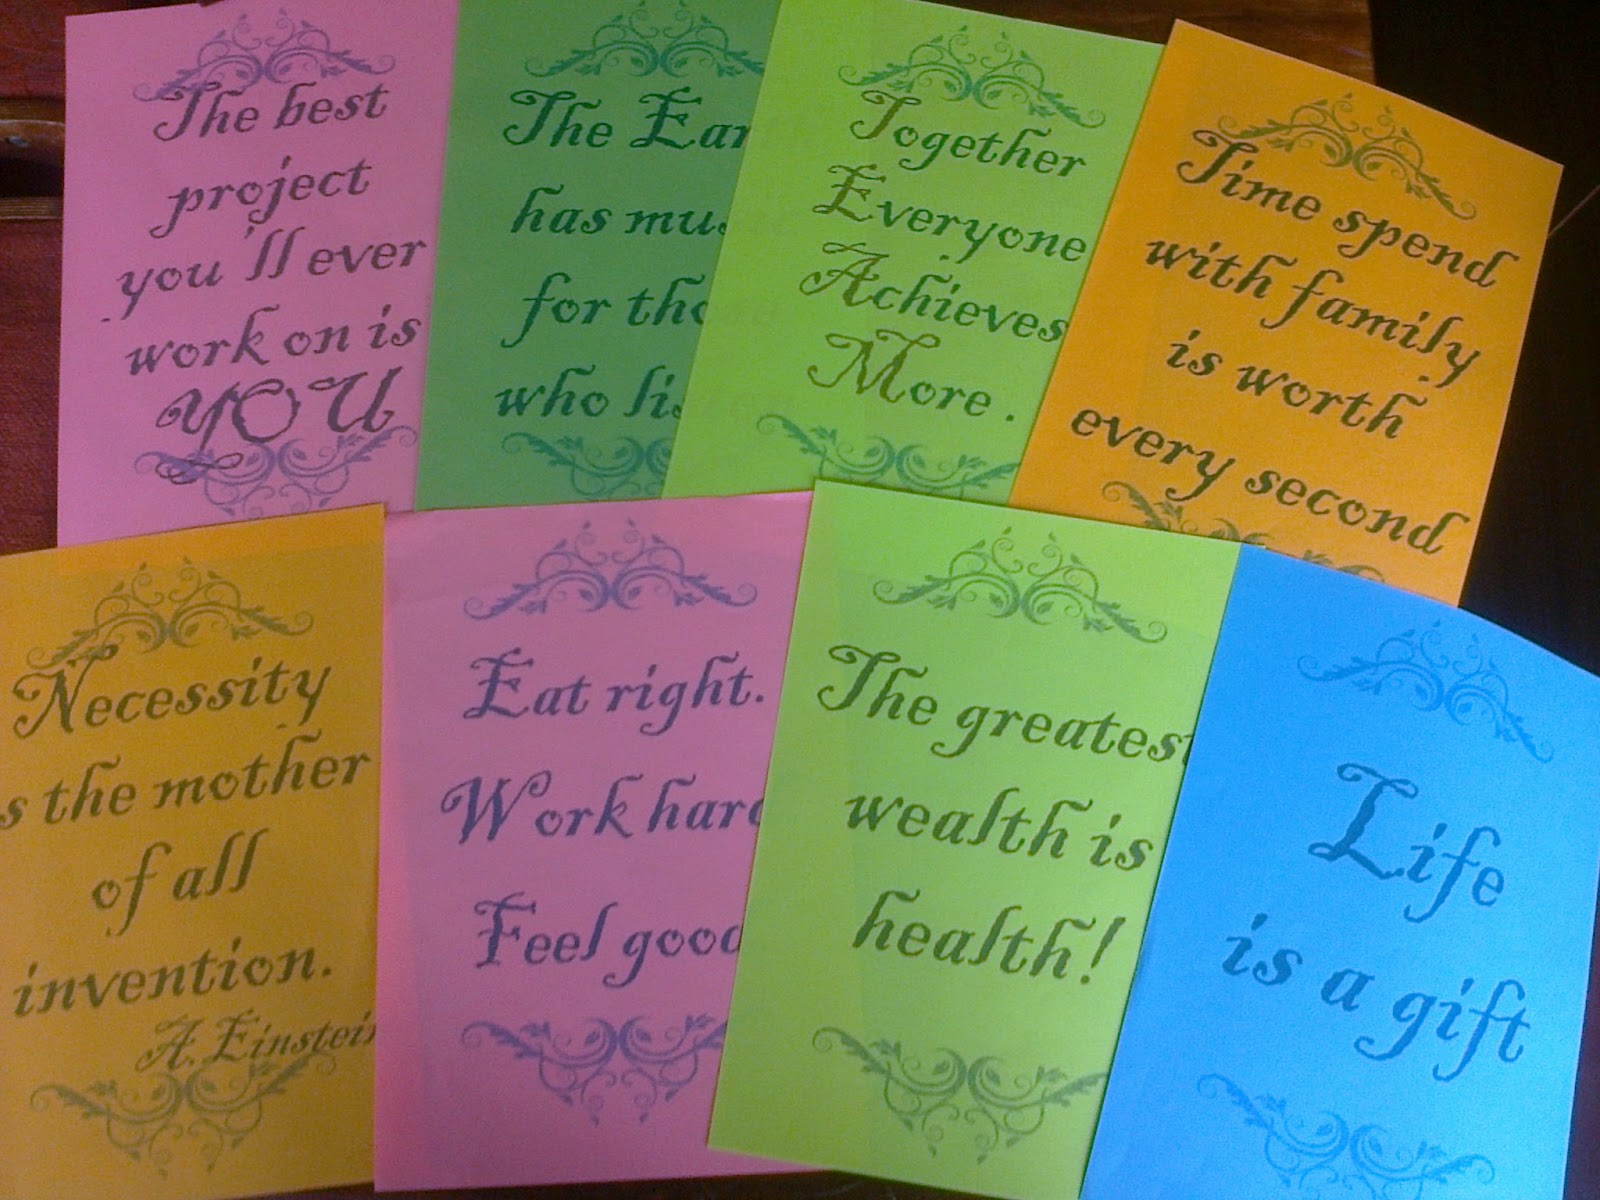 The best
project
you'll ever
work on is
YOU
The Ear
has mus
for tho
who lis
Together
Everyone
Achieves
More.
Time spend
with family
is worth
every second
Necessity
s the mother
of all
invention.
A. Einstein
Eat right.
Work hard
Feel good
The greatest
wealth is
health!
Life
is a gift